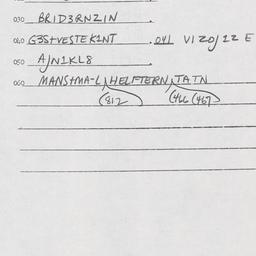 030 BRID3RNZIN .
040 G3S+VESTEK1NT . 041 VIZO/12 E
050 A/N1KL8 .
060 MANS+MA-L, HELFTERN, TATN
(812 (466 (467)